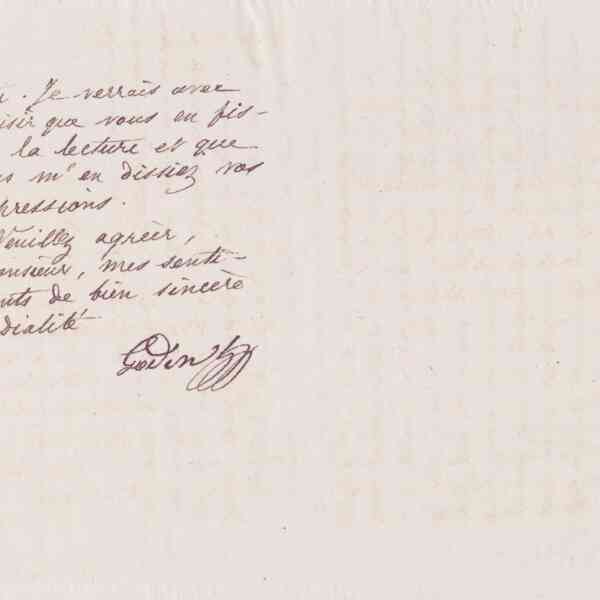 . Je verrais avec
isir que vous en fis-
la lecture et que
s m'en dissiez vos
pressions.
Veuillez agréer,
onsieur, mes senti-
nts de bien sincère
dialité
Godin